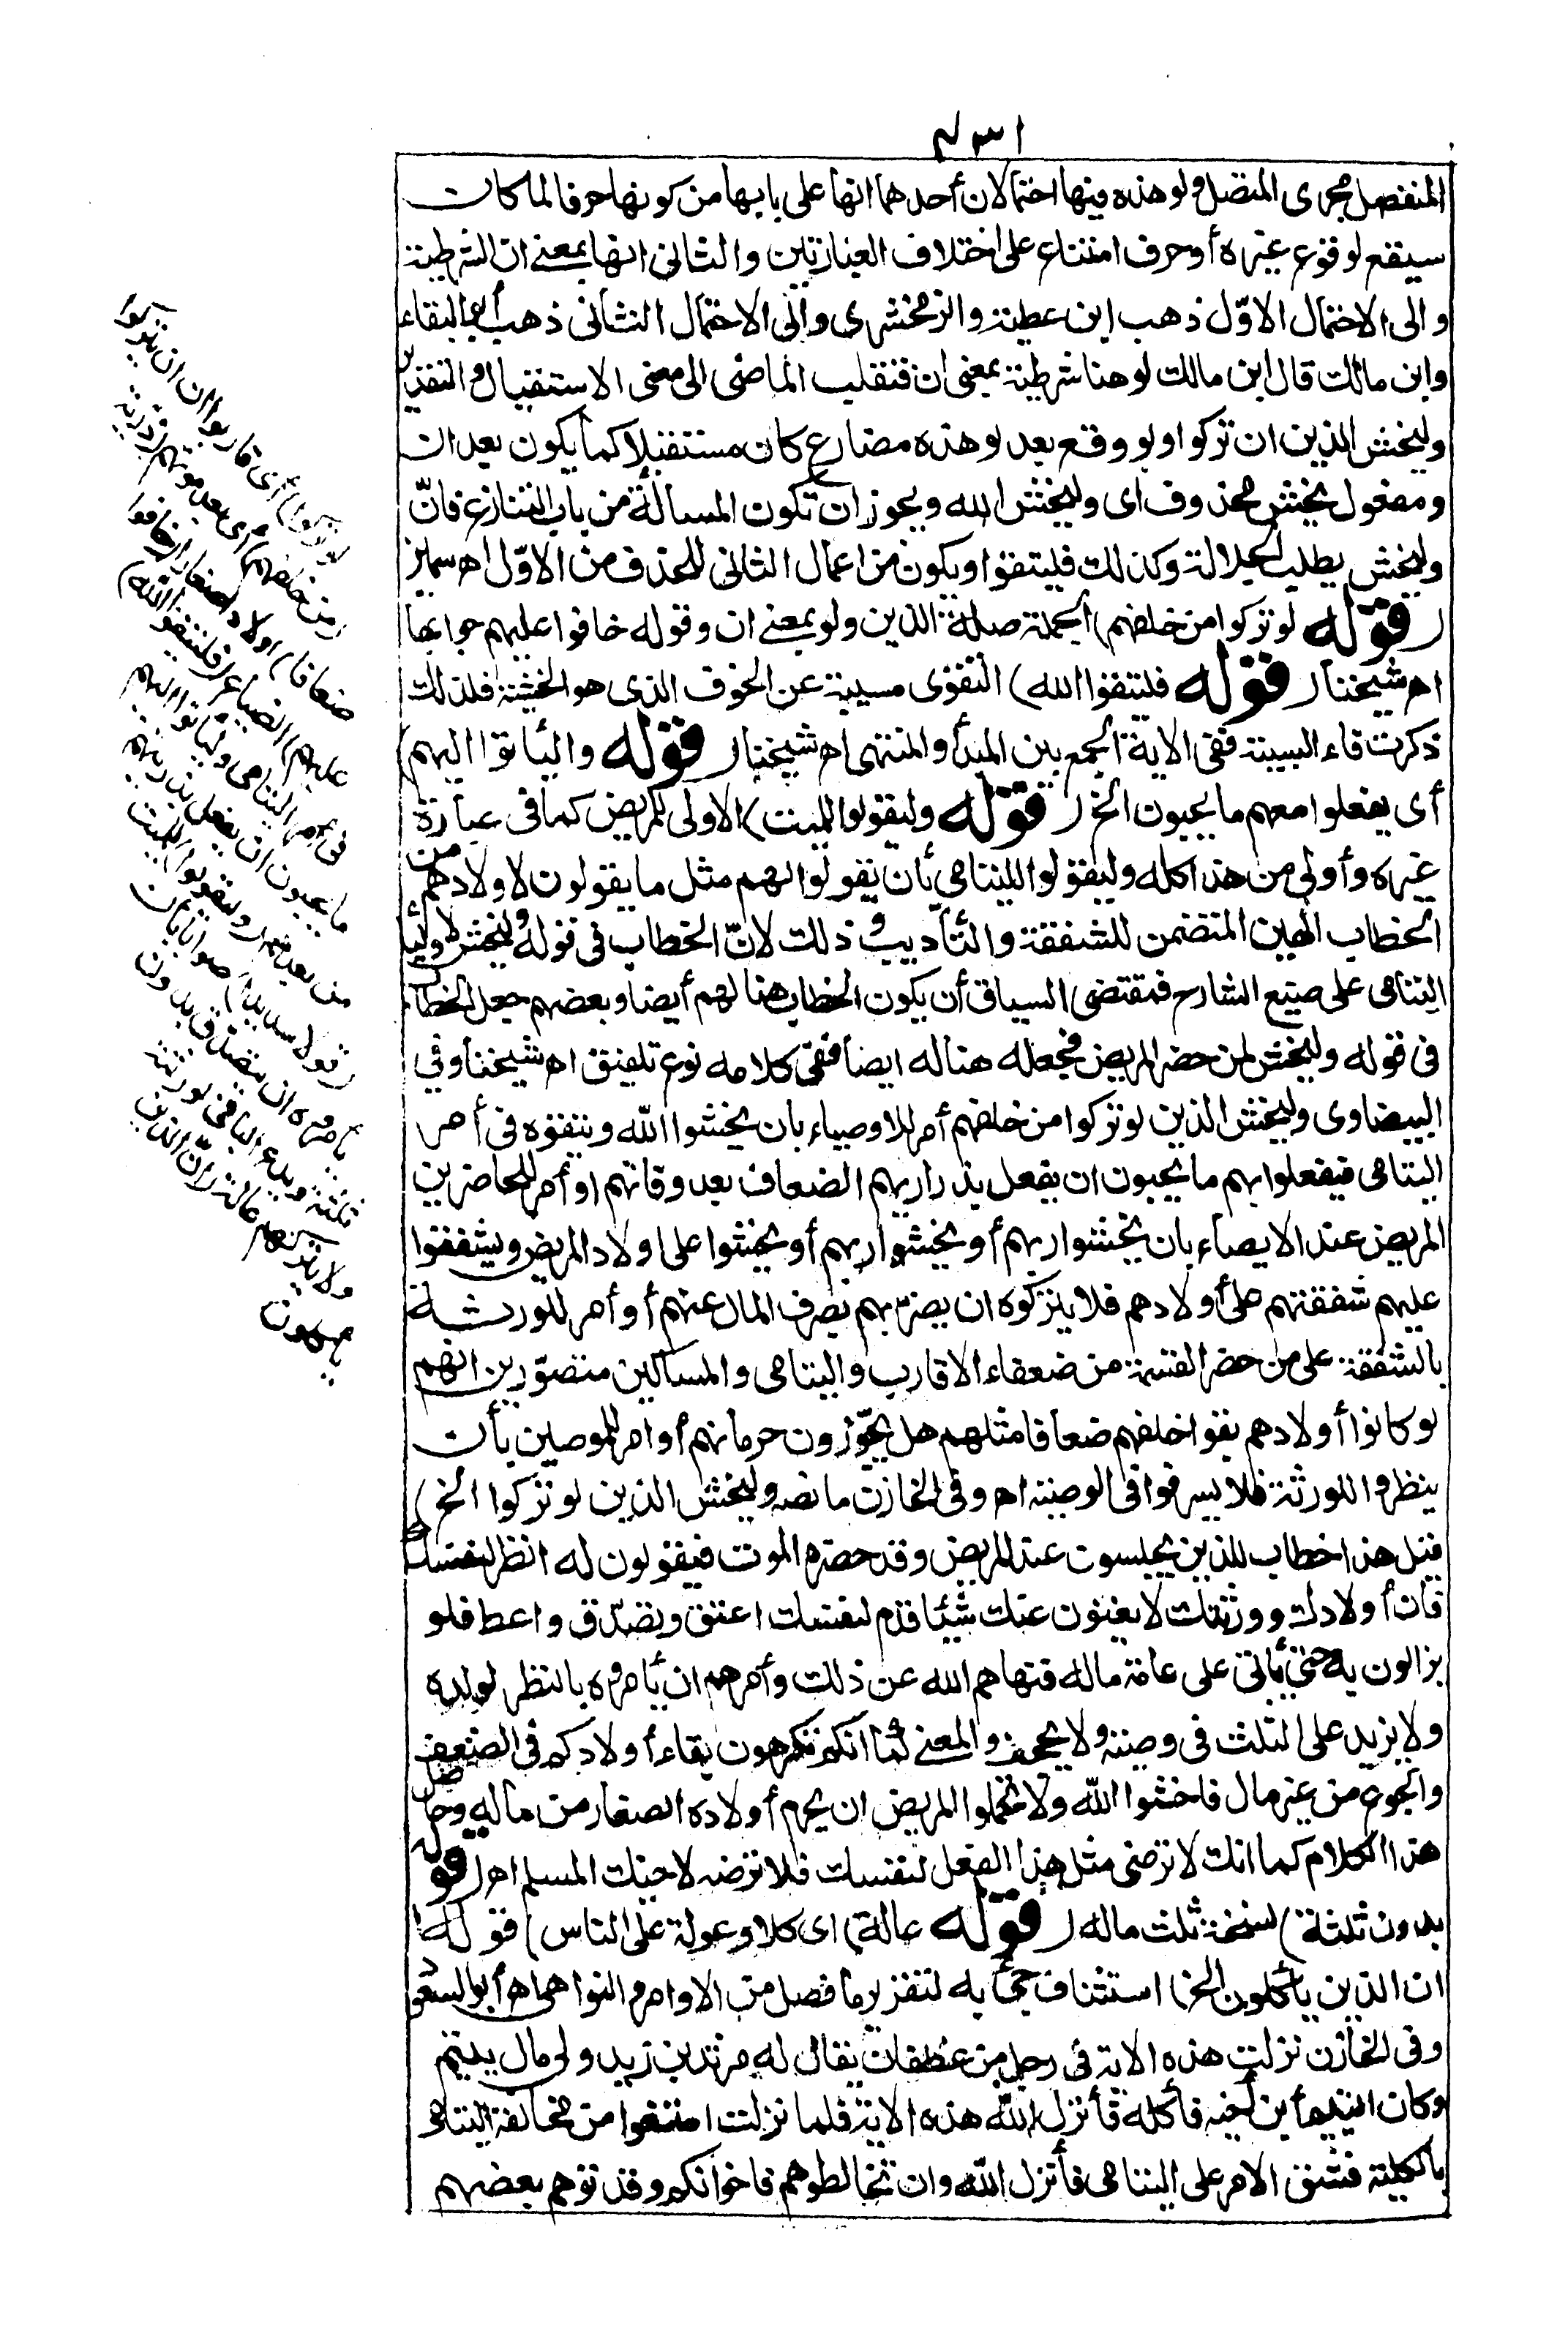 المنفصل مجرى المتصل ولو هذه فيها احتمالان أحدهما انها على بابها من كونها حرفا لما كان
سيقع لوقوع غيره أو حرف امتناع على اختلاف العبارتين والثانى انها بمعنى ان الشرطية
والى الاحتمال الاوّل ذهب ابن عطية والزمخشرى والى الاحتمال الثانى ذهب أبو البقاء
وابن مالك قال ابن مالك لو هنا شرطية بمعنى ان فتقلب الماضى الى معنى الاستقبال والتقدير
وليخش الذين ان تركوا ولو وقع بعد لو هذه مضارع كان مستقبلا كما يكون بعد ان
ومفعول يخش محذوف اى وليخش الله ويجوز ان تكون المسألة من باب التنازع فانّ
وليخش يطلب الجلالة وكذلك فليتقوا ويكون من اعمال الثانى للحذف من الاوّل اه سمين
(قوله لو تركوا من خلفهم) الجملة صلة الذين ولو بمعنى ان وقوله خافوا عليهم جوابها
اه شيخنا (قوله فليتقوا الله) التقوى مسببة عن الخوف الذى هو الخشية فلذلك
ذكرت فاء السببية ففى الاية الجمع بين المبدأ والمنتهى اه شيخنا (قوله واليأتوا اليهم)
أى يفعلوا معهم ما يحبون الخ (قوله وليقولوا للميت) الاولى للمريض كما فى عبارة
غيره وأولى من هذا كله وليقولوا لليتامى بأن يقولوا لهم مثل ما يقولون لاولادهم من
الخطاب الهين المتضمن للشفقة والتأديب وذلك لانّ الخطاب فى قوله وليخش لاولياء
اليتامى على صنيع الشارح فمقتضى السياق أن يكون الخطاب هنا لهم أيضا وبعضهم جعل الخطاب
فى قوله وليخش لمن حضر المريض فجعله هنا له ايضا ففى كلامه نوع تلفيق اه شيخنا وفي
البيضاوى وليخش الذين لو تركوا من خلفهم أمر للاوصياء بان يخشوا الله ويتقوه فى أمر
اليتامى فيفعلوا بهم ما يحبون ان يفعل بذراريهم الضعاف بعد وفاتهم او أمر للحاضرين
المريض عند الايصاء بان يخشوا ربهم أو يخشوا ربهم أو يخشوا على اولاد المريض ويشفقوا
عليهم شفقتهم على أولادهم فلا يتركوه ان يضرّ بهم بصرف المال عنهم أو أمر للورثة
بالشفقة على من حضر القسمة من ضعفاء الاقارب واليتامى والمساكين متصوّرين انهم
لو كانوا أولادهم بقوا خلفهم ضعافا مثلهم هل يجوّزون حرمانهم أو امر للموصين بأن
ينظروا للورثة فلا يسرفوا فى الوصية اه وفى الخازن ما نصه وليخش الذين لو تركوا الخ)
قيل هذا خطاب للذين يجلسون عند المريض وقد حضره الموت فيقولون له انظر لنفسك
فان أولادك وورثتك لا يغنون عنك شيئا قدم لنفسك اعتق وتصدّق واعط فلا
يزالون به حتى يأتى على عامة ماله فنهاهم الله عن ذلك وأمرهم ان يأمروه بالنظر لولده
ولا يزيد على الثلث فى وصيته ولا يجحف والمعنى كما انكم تكرهون بقاء أولادكم فى الضعف
والجوع من غير مال فاخشوا الله ولا تحملوا المريض ان يحرم أولاده الصغار من ماله وحاصل
هذا الكلام كما انك لا ترضى مثل هذا الفعل لنفسك فلا ترضه لاخيك المسلم اه (قوله
بدون ثلثة) نسخة ثلث ماله (قوله عالة) اى كلا وعولة على الناس) قوله
ان الذين يأكلون الخ) استئناف جئ به لتقرير ما فصل من الاوامر والنواهى اه أبو السعود
وفى الخازن نزلت هذه الاية فى رجل من غطفان يقال له مرثد بن زيد ولى مال يتيم
وكان اليتيم ابن أخيه فأكله فأنزل الله هذه الاية فلما نزلت امتنعوا من مخالفة اليتامى
بالكلية فشق الامر على اليتامى فأنزل الله وان تخالطوهم فاخوانكم وقد توهم بعضهم
لو تركوا) أى قاربوا ان ان يتركوا
(من خلفهم) أى بعد موتهم (ذرية
ضعافا) اولاد اصغارا (خافوا
عليهم) الضياع (فليتقوا الله)
فى أمر اليتامى وليأتوا اليهم
ما يحبون ان يفعل بذريتهم
من بعدهم (وليقولوا) للميت
(قولا سديدا) صوابا بان
يأمروه ان يتصدق بدون
ثلثة ويدع الباقى لورثته
ولا يتركهم عالة (انّ الذين
يأكلون